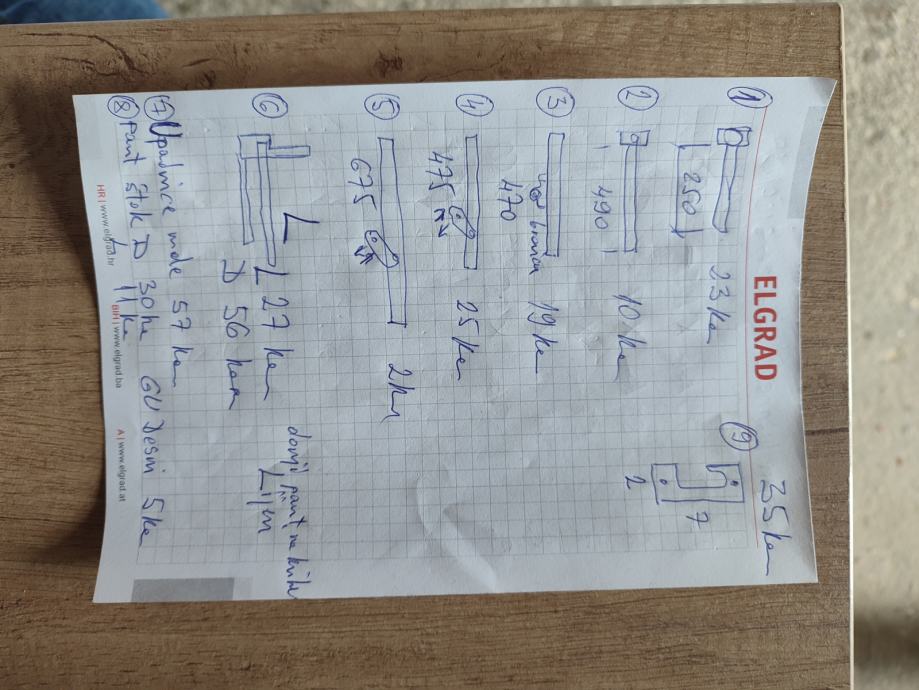 ELGRAD
① 250 23 kom
② 490 10 kom
③ 470 19 kom
④ 475 25 kom
⑤ 675 2 kom
⑥ L
L 27 kom
D 56 kom
donji pant na krilu
Lijevi
⑦ 57 kom
⑧ Pant štok D 30 kom GU Desni 5 kom
L 11 kom
⑨ 35 kom
7
2
HR | www.elgrad.hr BIH | www.elgrad.ba A | www.elgrad.at